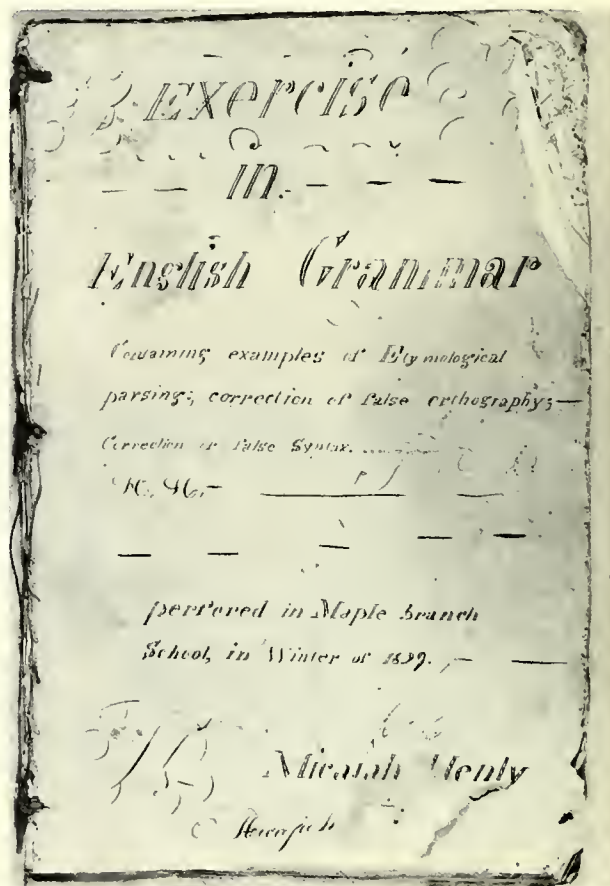 Exercise
in.
English Grammar
Containing examples of Etymological
parsing; correction of false orthography;
Correction of false Syntax.
perfored in Maple branch
School, in Winter of
Micajah Henly